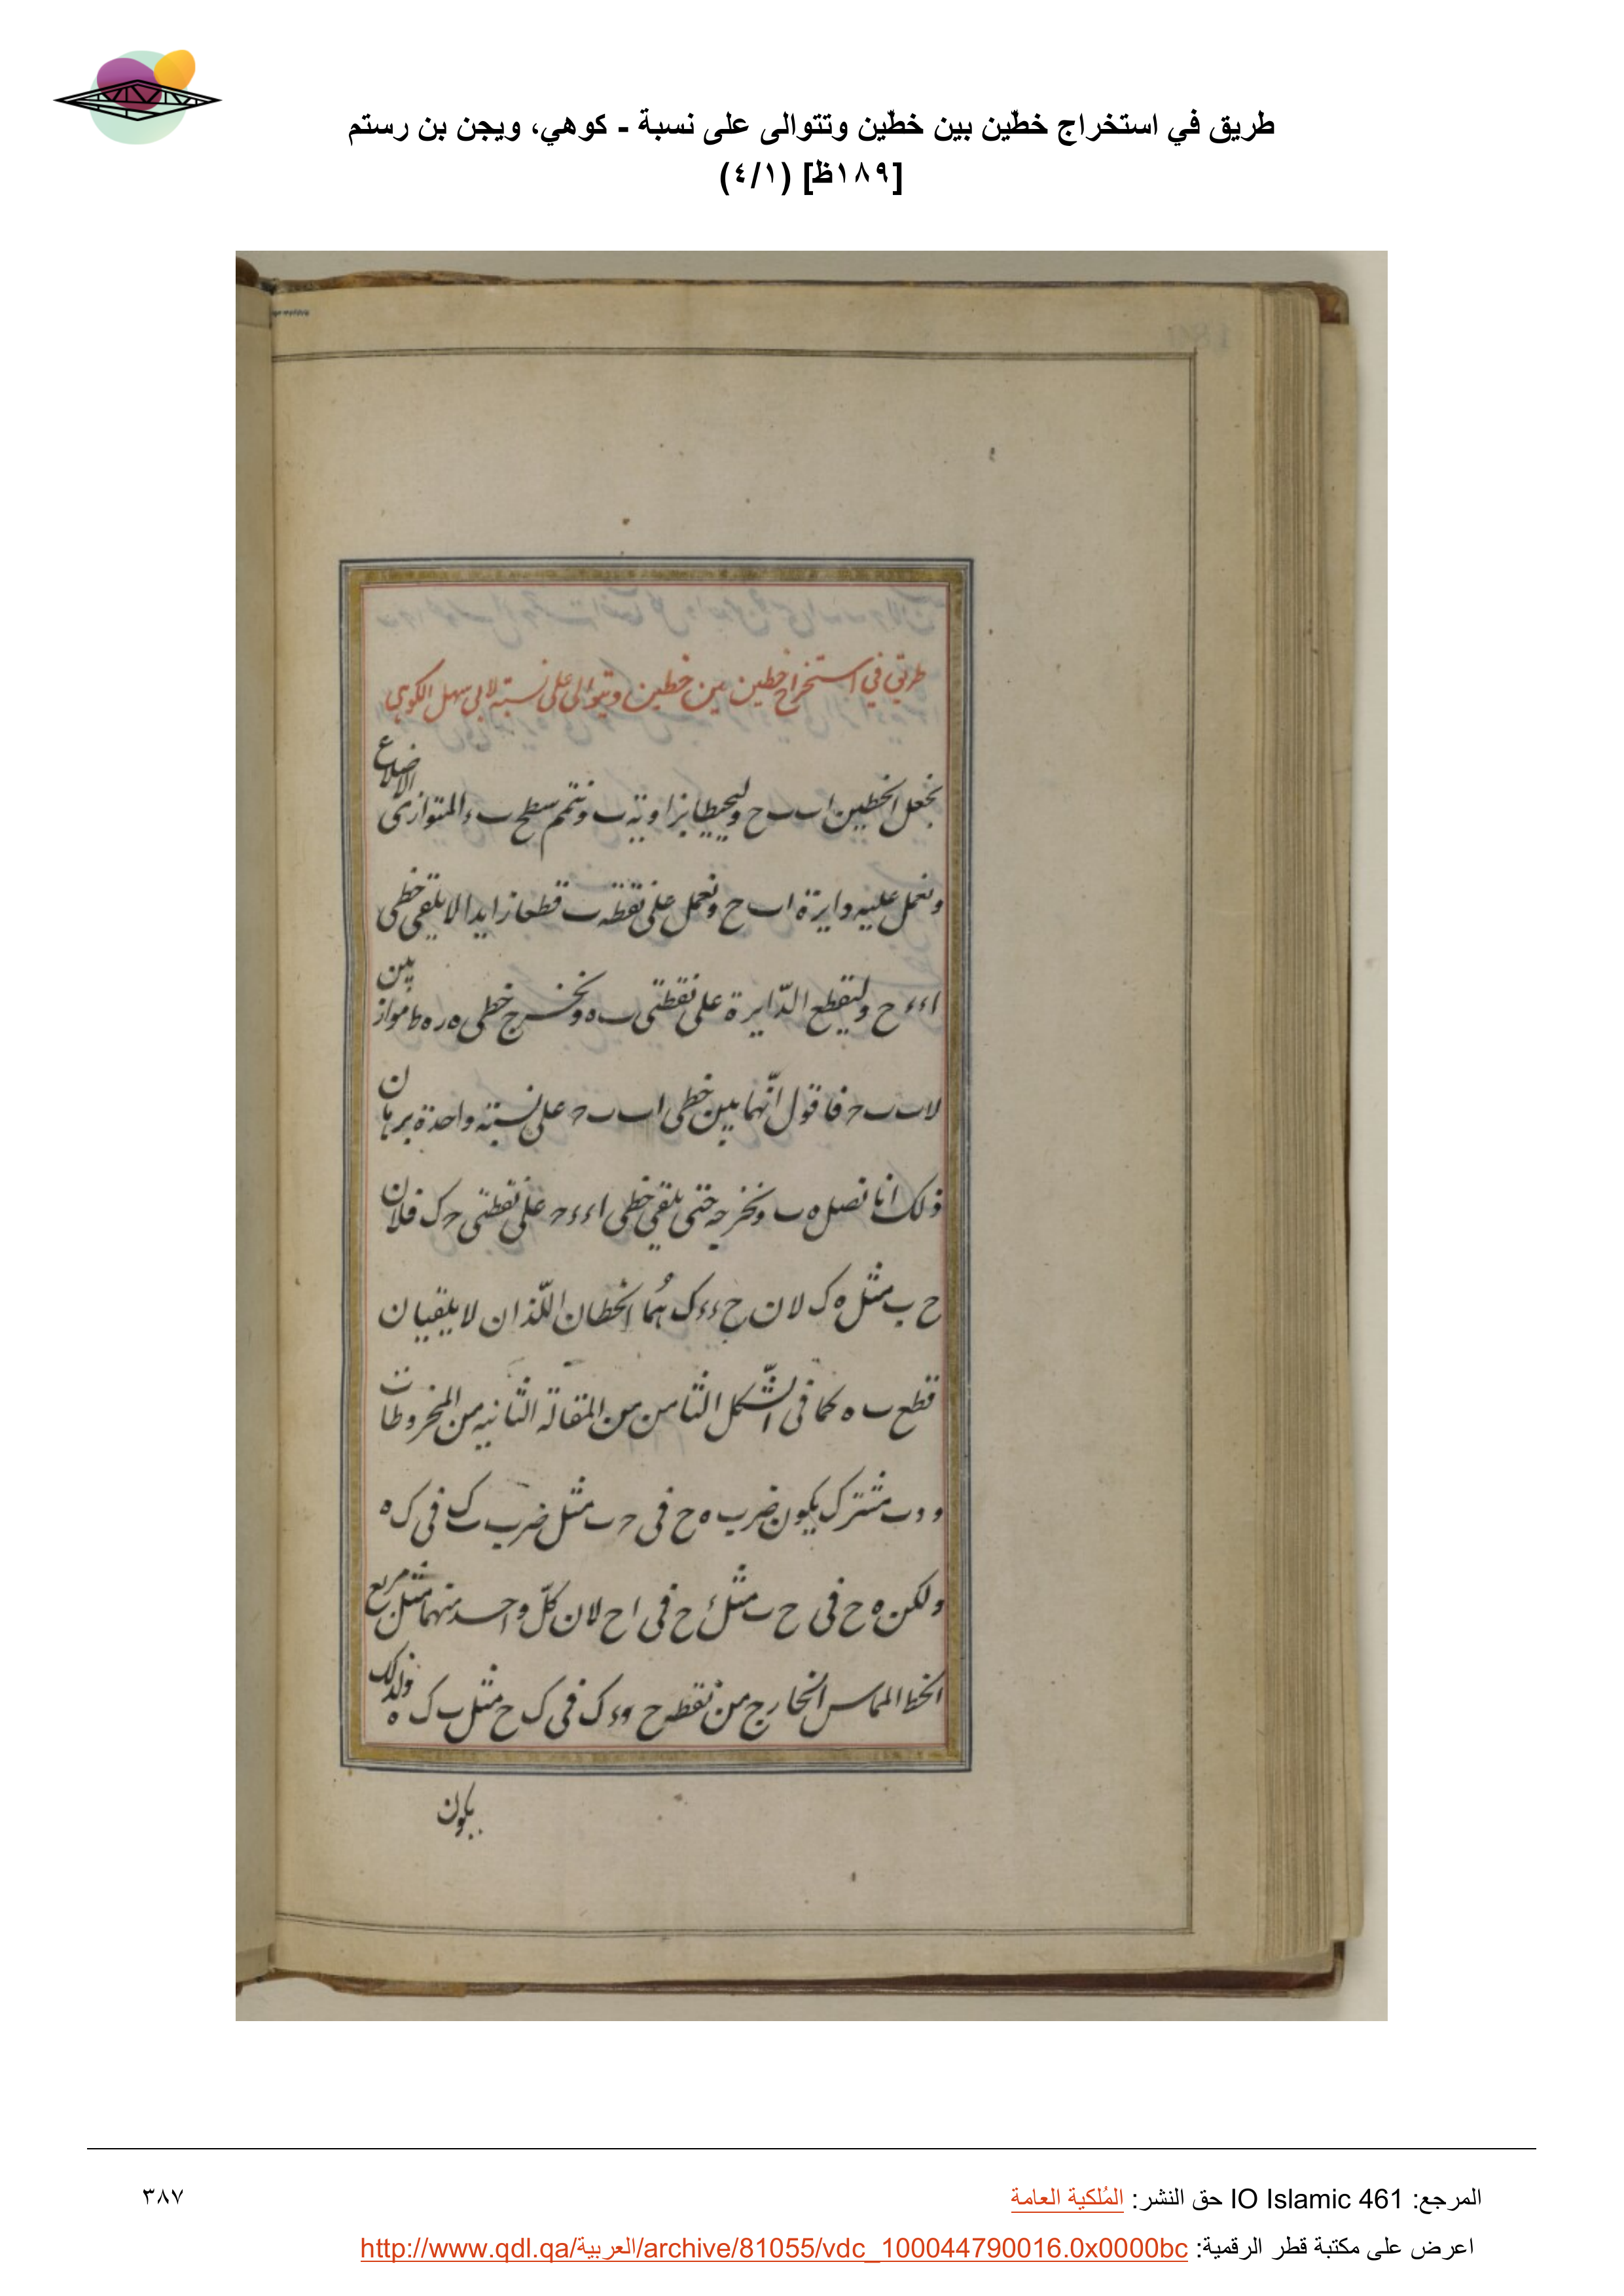 طريق في استخراج خطّين بين خطّين وتتوالى على نسبة - كوهي، ويجن بن رستم
[١٨٩ظ] (٤/١)
طريق في استخراج خطين بين خطين ويتوالى على نسبة لابى سهل الكوهى
نجعل الخطين اب ب ح وليحيطا بزاوية ب ونتمم سطح ب ء المتوازى الاضلاع
ونعمل عليه دايرة اب ح ونعمل على نقطة ب قطعا زايدا لا يلقى خطى
اء ء ح وليقطع الدّايرة على نقطتى ب ه ونخرج خطى ه ر ه ط موازيين
لاب ب ح فاقول انّهما بين خطى اب ب ح على نسبة واحدة برهان
ذلك انا نصل ه ب ونخرجه حتى يلقى خطى اء ء ح على نقطتى ح ك فلان
ح ب مثل ه ك لان ح ء ء ك هُما الخطان اللّذان لا يلقيان
قطع ب ه كما فى الشّكل الثامن من المقالة الثانيه من المخروطات
و ه ب مشترك يكون ضرب ه ح فى ح ب مثل ضرب ب ك فى ك ه
ولكن ه ح فى ح ب مثل ء ح فى ا ح لان كلّ واحد منهما مثل مربع
الخط المماس الخارج من نقطه ح و ء ك فى ك ح مثل ب ك ه ولذلك
يكون
المرجع: IO Islamic 461 حق النشر: المُلكية العامة
٣٨٧
اعرض على مكتبة قطر الرقمية: http://www.qdl.qa/العربية/archive/81055/vdc_100044790016.0x0000bc